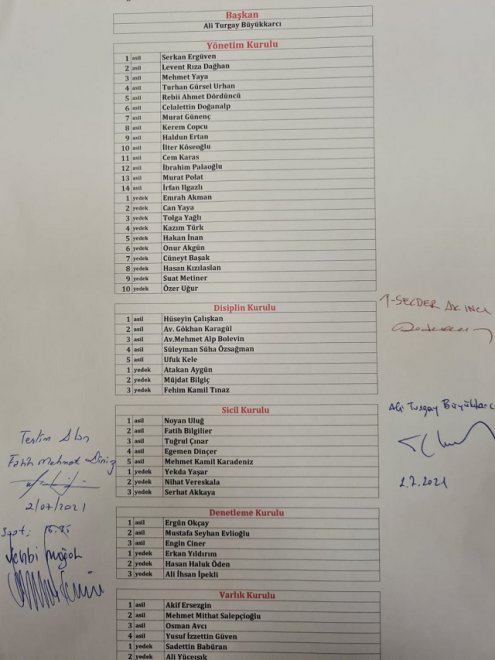 Başkan
Ali Turgay Büyükkarcı
Yönetim Kurulu
1 asil Serkan Ergüven
2 asil Levent Rıza Dağhan
3 asil Mehmet Yaya
4 asil Turhan Gürsel Urhan
5 asil Rebii Ahmet Dördüncü
6 asil Celalettin Doğanalp
7 asil Murat Günenç
8 asil Kerem Copcu
9 asil Haldun Ertan
10 asil İlter Köseoğlu
11 asil Cem Karas
12 asil İbrahim Palaoğlu
13 asil Murat Polat
14 asil İrfan Ilgazlı
1 yedek Emrah Akman
2 yedek Can Yaya
3 yedek Tolga Yağlı
4 yedek Kazım Türk
5 yedek Hakan İnan
6 yedek Onur Akgün
7 yedek Cüneyt Başak
8 yedek Hasan Kızılaslan
9 yedek Suat Metiner
10 yedek Özer Uğur
Disiplin Kurulu
1 asil Hüseyin Çalışkan
2 asil Av. Gökhan Karagül
3 asil Av.Mehmet Alp Bolevin
4 asil Süleyman Süha Özsağman
5 asil Ufuk Kele
1 yedek Atakan Aygün
2 yedek Müjdat Bilgiç
3 yedek Fehim Kamil Tınaz
Sicil Kurulu
1 asil Noyan Uluğ
2 asil Fatih Bilgilier
3 asil Tuğrul Çınar
4 asil Egemen Dinçer
5 asil Mehmet Kamil Karadeniz
1 yedek Yekda Yaşar
2 yedek Nihat Vereskala
3 yedek Serhat Akkaya
Denetleme Kurulu
1 asil Ergün Okçay
2 asil Mustafa Seyhan Evlioğlu
3 asil Engin Ciner
1 yedek Erkan Yıldırım
2 yedek Hasan Haluk Öden
3 yedek Ali İhsan İpekli
Varlık Kurulu
1 asil Akif Ersezgin
2 asil Mehmet Mithat Salepçioğlu
3 asil Osman Avcı
4 asil Yusuf İzzettin Güven
1 yedek Sadettin Babüran
2 yedek Ali Yüceışık
1-SECDER AKINCI
Ali Turgay Büyükkarcı
2.7.2021
Teslim Alan
Fatih Mehmet
2/07/2021
Saat: